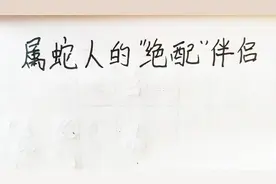 属蛇人的"绝配"伴侣